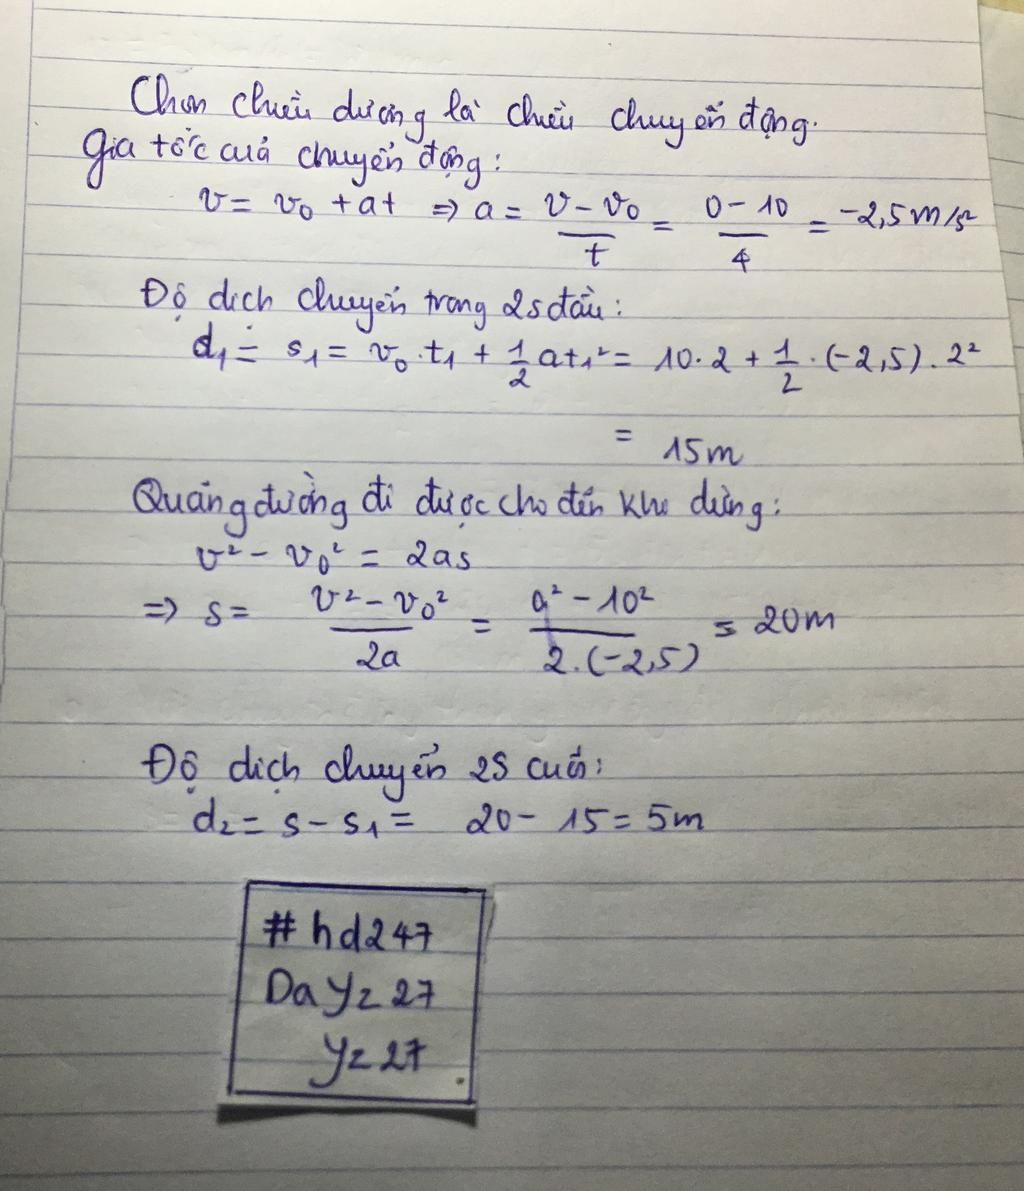 Chọn chiều dương là chiều chuyển động.
Gia tốc của chuyển động:
v = v₀ + at ⇒ a = (v - v₀)/t = (0 - 10)/4 = -2,5 m/s²
Độ dịch chuyển trong 2s đầu:
d₁ = s₁ = v₀.t₁ + 1/2 at₁² = 10.2 + 1/2 . (-2,5) . 2²
= 15m
Quãng đường đi được cho đến khi dừng:
v² - v₀² = 2as
⇒ s = (v² - v₀²)/(2a) = (0² - 10²)/(2.(-2,5)) = 20m
Độ dịch chuyển 2s cuối:
d₂ = s - s₁ = 20 - 15 = 5m
#hd247
Da Yz 27
Yz 27